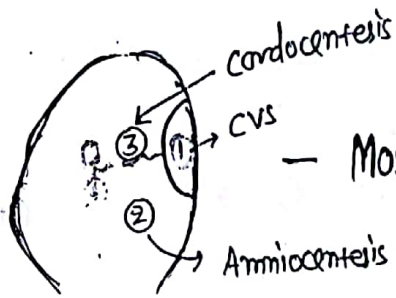 Cordocentesis
③
① → CVS
— Mo
②
Amniocentesis